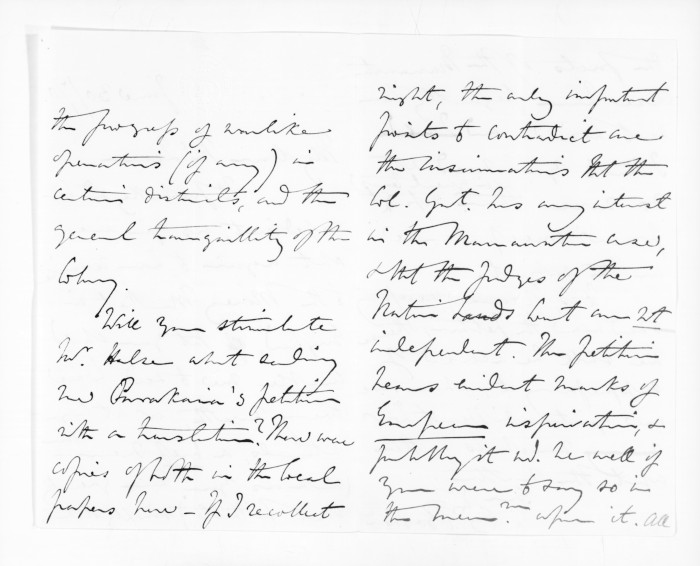 the progress of warlike
operations (if any) in
certain districts, and the
general tranquillity of the
Colony.
Will you stimulate
Mr. Halse about sending
me Parakaia's petition
with a translation? There were
copies of both in the local
papers here - If I recollect
right, the only important
points to contradict are
the insinuations that the
Col. Govt. has any interest
in the Manawatu case,
& that the Judges of the
Native Lands Court are not
independent. The petition
bears evident marks of
European inspiration, &
probably it wd. be well if
you were to say so in
the memm. upon it. All